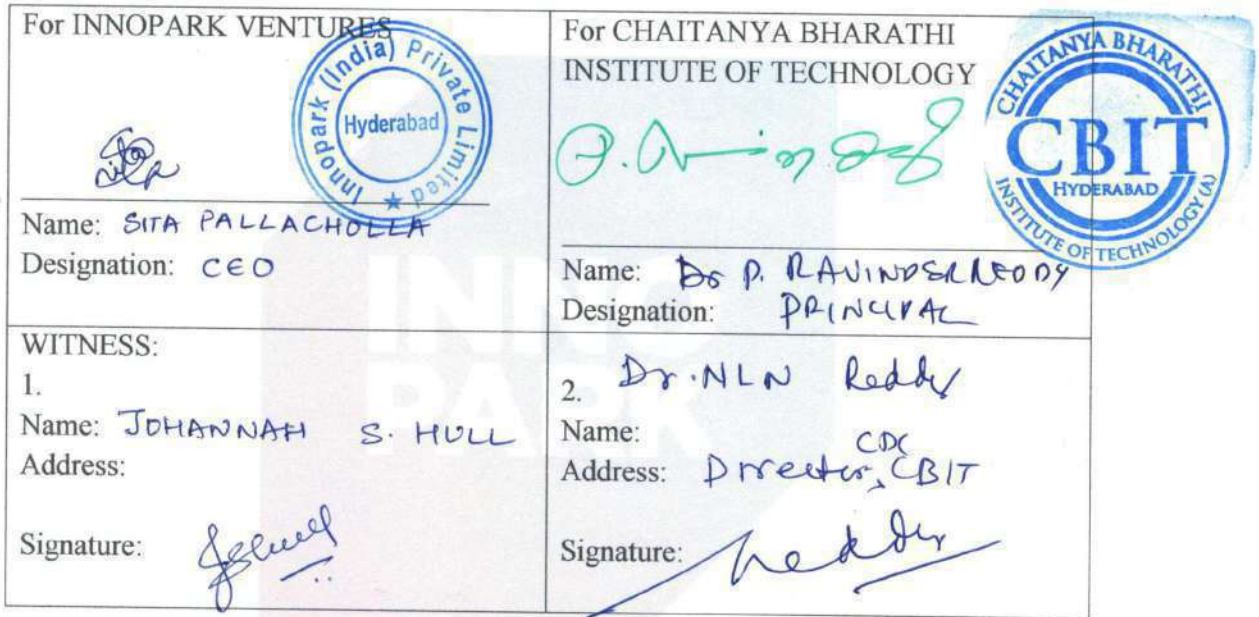 For INNOPARK VENTURES
Innopark (India) Private Limited ★
Hyderabad
Name: SITA PALLACHOLLA
Designation: CEO
For CHAITANYA BHARATHI
INSTITUTE OF TECHNOLOGY
CHAITANYA BHARATHI
CBIT
HYDERABAD
INSTITUTE OF TECHNOLOGY (A)
Name: Dr P. RAVINDER REDDY
Designation: PRINCIPAL
WITNESS:
1.
Name: JOHANNAH S. HULL
Address:
Signature:
2. Dr. NLN Reddy
Name:
CDC
Address: Director, CBIT
Signature: Reddy
INNO
PARK